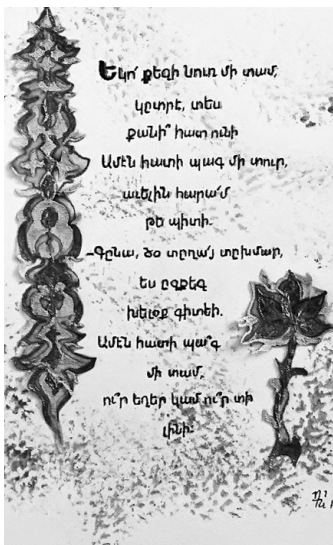 Եկո՛ քեզի նուռ մի տամ,
կըտրէ, տես
քանի՞ հատ ունի
Ամէն հատի պագ մի տուր,
աւելին հարա՛մ
թե պիտի.
-Գընա, ծօ տըղա՛յ տըխմար,
ես ըզքեզ
խելօք գիտեի.
Ամէն հատի պա՞գ
մի տամ,
ու՞ր եղեր կամ ու՞ր տի
լինի: